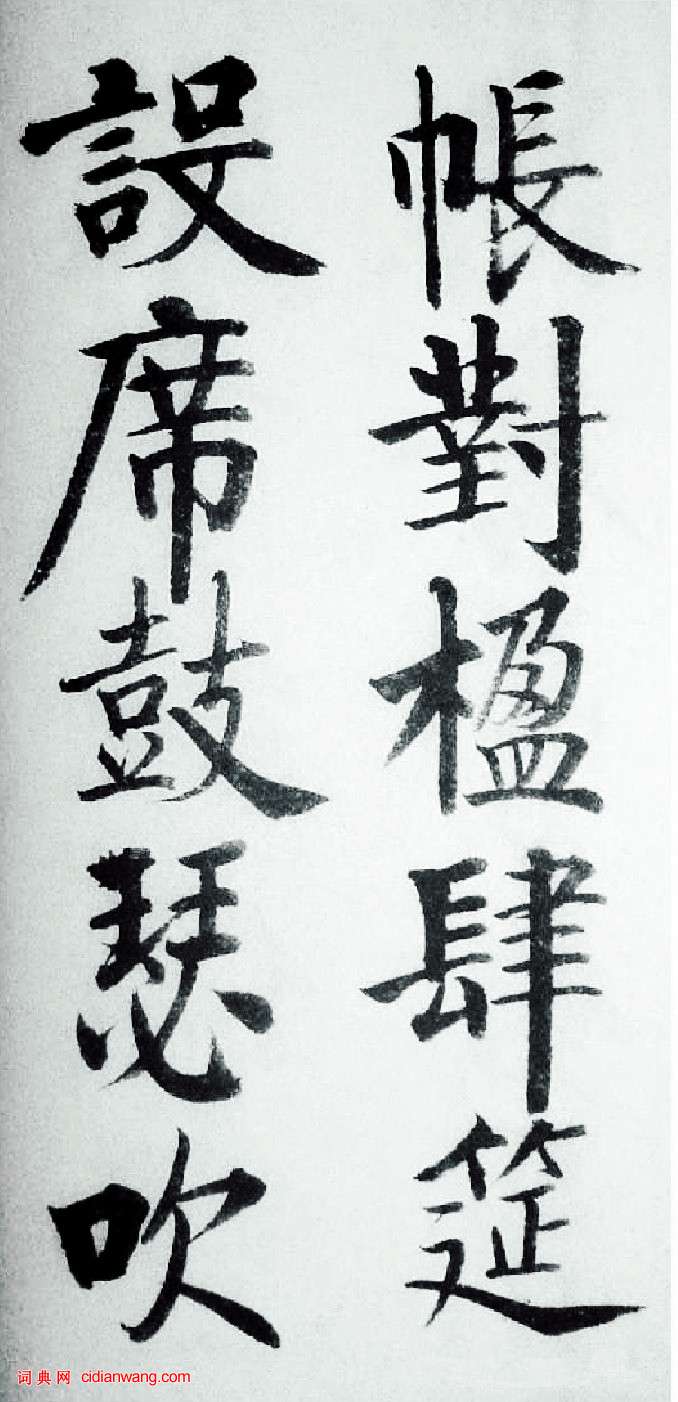 帳對楹肆筵
設席鼓瑟吹
词典网 cidianwang.com